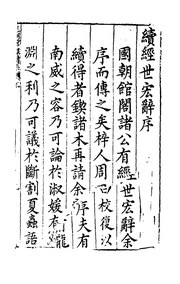 續經世宏辭序
國朝館閣諸公有經世宏辭余
序而傳之矣梓人周氏校復以
續得者鍥諸木再請余序夫有
南威之容乃可論於淑媛有龍
淵之利乃可議於斷割夏蟲語